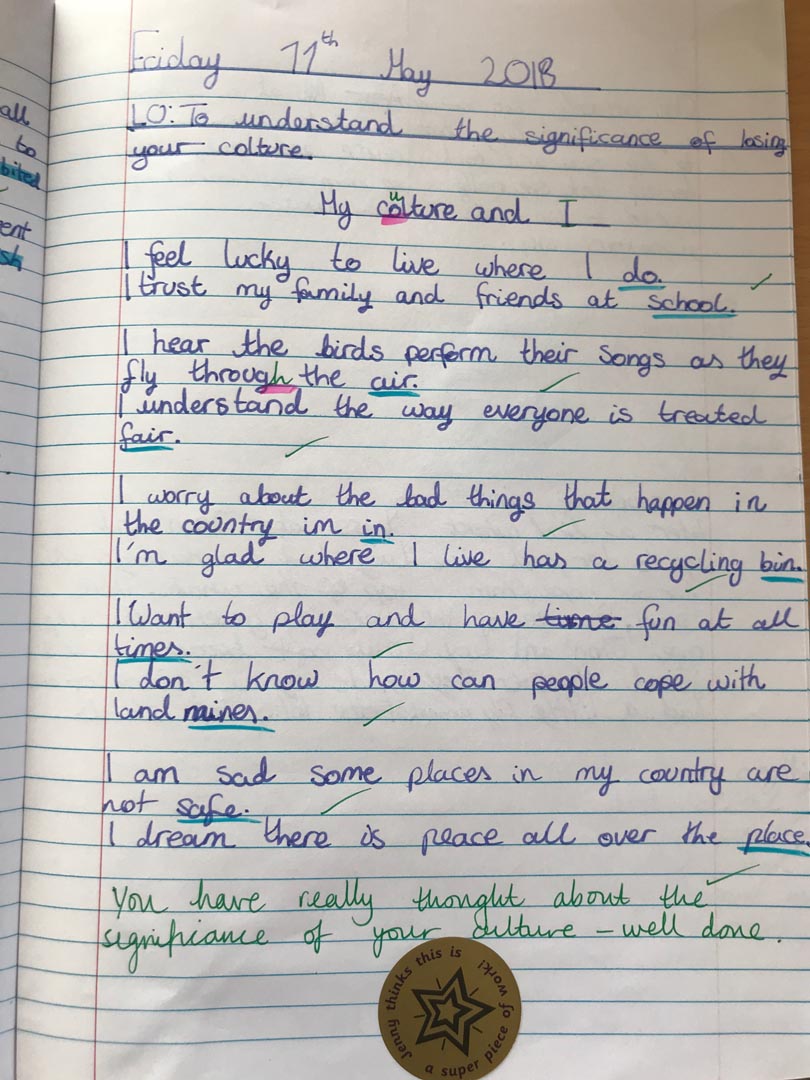 Friday 11th May 2018
LO: To understand the significance of losing
your colture.
My colture and I
u
I feel lucky to live where I do.
I trust my family and friends at school.
I hear the birds perform their songs as they
fly through the air.
I understand the way everyone is treated
fair.
I worry about the bad things that happen in
the country im in.
I'm glad where I live has a recycling bin.
I Want to play and have time fun at all
times.
I don't know how can people cope with
land mines.
I am sad some places in my country are
not safe.
I dream there is peace all over the place.
You have really thought about the
significance of your culture – well done.
Jenny thinks this is
a super piece of work!
all
to
bited
ent
sh